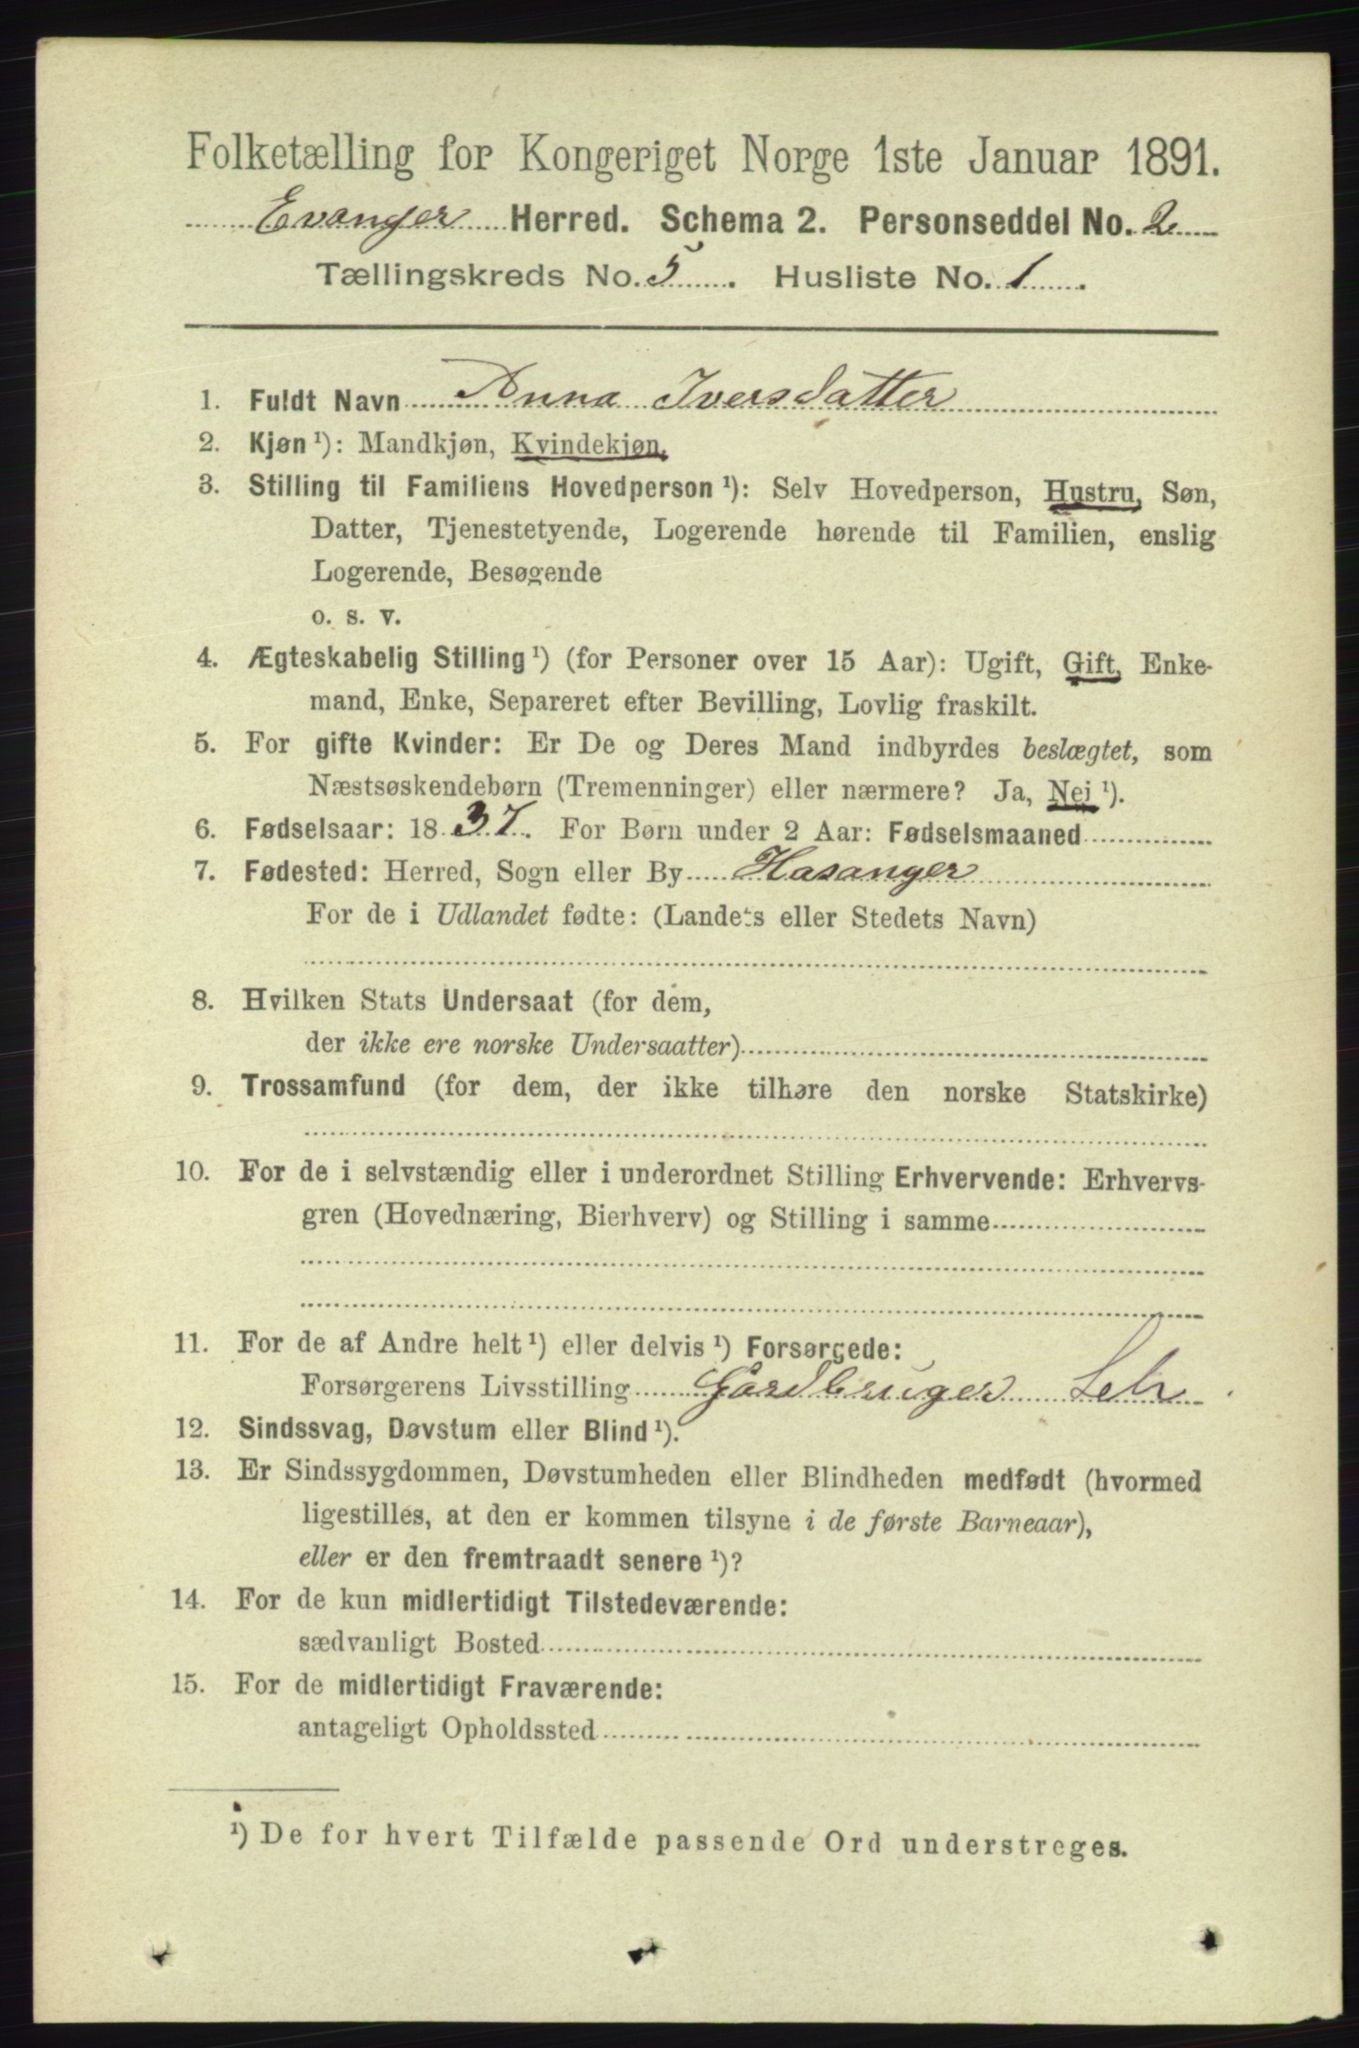 Folketælling for Kongeriget Norge 1ste Januar 1891.
Evanger Herred. Schema 2. Personseddel No. 2
Tællingskreds No. 5. Husliste No. 1.
1. Fuldt Navn Anna Iversdatter
2. Kjøn ¹): Mandkjøn, Kvindekjøn.
3. Stilling til Familiens Hovedperson ¹): Selv Hovedperson, Hustru, Søn,
Datter, Tjenestetyende, Logerende hørende til Familien, enslig
Logerende, Besøgende
o. s. v.
4. Ægteskabelig Stilling ¹) (for Personer over 15 Aar): Ugift, Gift, Enke-
mand, Enke, Separeret efter Bevilling, Lovlig fraskilt.
5. For gifte Kvinder: Er De og Deres Mand indbyrdes beslægtet, som
Næstsøskendebørn (Tremenninger) eller nærmere? Ja, Nei ¹).
6. Fødselsaar: 1837. For Børn under 2 Aar: Fødselsmaaned
7. Fødested: Herred, Sogn eller By Hasanger
For de i Udlandet fødte: (Landets eller Stedets Navn)
8. Hvilken Stats Undersaat (for dem,
der ikke ere norske Undersaatter)
9. Trossamfund (for dem, der ikke tilhøre den norske Statskirke)
10. For de i selvstændig eller i underordnet Stilling Erhvervende: Erhvervs-
gren (Hovednæring, Bierhverv) og Stilling i samme
11. For de af Andre helt ¹) eller delvis ¹) Forsørgede:
Forsørgerens Livsstilling Gardbruger Selv
12. Sindssvag, Døvstum eller Blind ¹).
13. Er Sindssygdommen, Døvstumheden eller Blindheden medfødt (hvormed
ligestilles, at den er kommen tilsyne i de første Barneaar),
eller er den fremtraadt senere ¹)?
14. For de kun midlertidigt Tilstedeværende:
sædvanligt Bosted
15. For de midlertidigt Fraværende:
antageligt Opholdssted
¹) De for hvert Tilfælde passende Ord understreges.